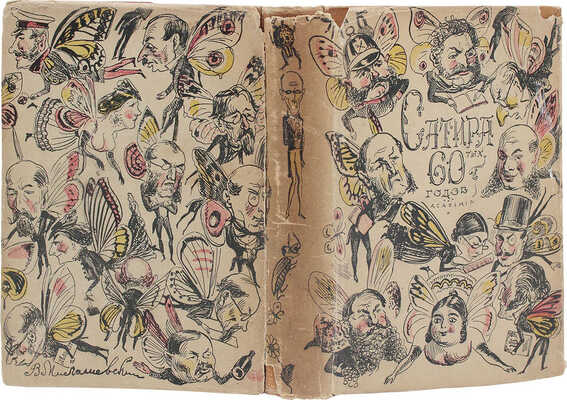 САТИРА
60 тых
годов
ACADEMIA
В Милашевский